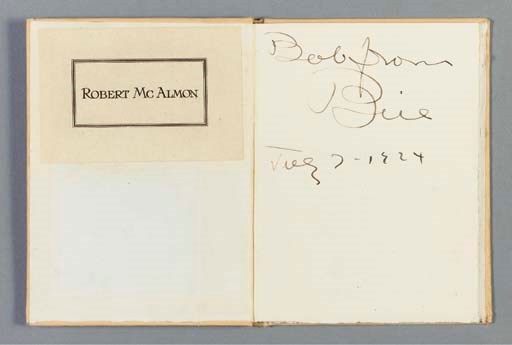 ROBERT MCALMON
Bob from
Bill
July 7-1924